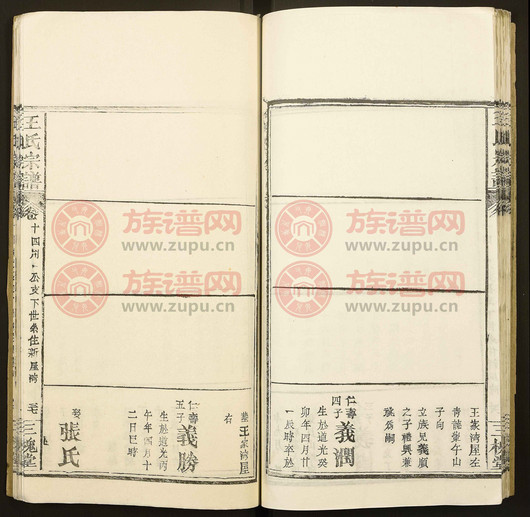 仁壽
四子
義潤
生於道光癸
卯年四月廿
一辰時卒於
王家湾屋左
青龍堂午山
子向
立族兄義顺
之子禮興兼
祧為嗣
三槐堂
葬王家湾屋
右
仁壽
五子
義勝
生於道光丙
午年四月十
二日巳時
娶
張氏
王氏宗譜
卷
十四
下世系住新屋湾
三槐堂
族谱网
www.zupu.cn
族谱网
www.zupu.cn
族谱网
www.zupu.cn
族谱网
www.zupu.cn